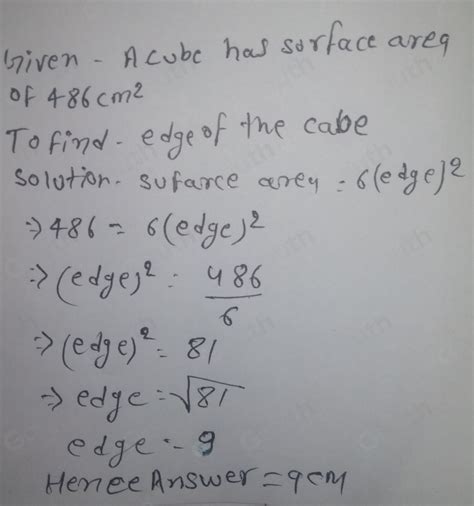 Given - A cube has surface area
of 486 cm²
To find - edge of the cabe
solution - sufarce arey = 6(edge)²
⇒ 486 = 6(edge)²
⇒ (edge)² = 486/6
⇒ (edge)² = 81
⇒ edge = √81
edge = 9
Hence Answer = 9 cm